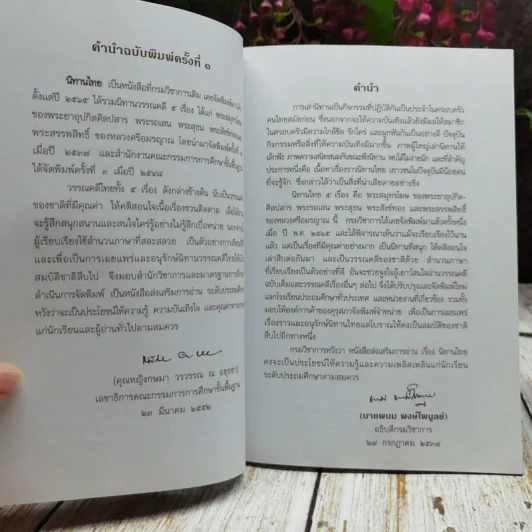 คำนำฉบับพิมพ์ครั้งที่ ๓
นิทานไทย เป็นหนังสือที่กรมวิชาการเดิม เคยจัดพิมพ์มาแล้ว
ตั้งแต่ปี ๒๕๖๕ ได้รวมนิทานวรรณคดี ๕ เรื่อง ได้แก่ พระสมุทร
ของพระยาอุปกิตศิลปสาร พระรถเสน พระสุธน พระสังข์ทอง
พระสรรพสิทธิ์ ของหลวงศรีอมรญาณ โดยนำมาจัดพิมพ์ครั้งที่
เมื่อปี ๒๕๓๗ และสำนักงานคณะกรรมการการศึกษาขั้นพื้นฐาน
ได้จัดพิมพ์ครั้งที่ ๓ เมื่อปี ๒๕๔๘
วรรณคดีไทยทั้ง ๕ เรื่อง ดังกล่าวข้างต้น นับเป็นวรรณคดี
ของชาติที่มีคุณค่า ให้คติสอนใจเนื้อเรื่องชวนติดตาม เมื่อได้อ่าน
จะรู้สึกสนุกสนานและสนใจใคร่รู้อย่างไม่รู้สึกเบื่อหน่าย นอกจากนี้
ผู้เรียบเรียงใช้สำนวนภาษาที่สละสลวย เป็นตัวอย่างการเขียนที่ดี
และเพื่อเป็นการเผยแพร่และอนุรักษ์นิทานวรรณคดีไทยให้เป็น
สมบัติชาติสืบไป จึงมอบสำนักวิชาการและมาตรฐานการศึกษา
ดำเนินการจัดพิมพ์ เป็นหนังสือส่งเสริมการอ่าน ระดับประถมศึกษา
หวังว่าจะเป็นประโยชน์ให้ความรู้ ความบันเทิงใจ และคุณค่าทางภาษา
แก่นักเรียนและผู้อ่านทั่วไปตามสมควร
(คุณหญิงกษมา วรวรรณ ณ อยุธยา)
เลขาธิการคณะกรรมการการศึกษาขั้นพื้นฐาน
๒๓ มีนาคม ๒๕๕๒
คำนำ
การเล่านิทานเป็นกิจกรรมที่ปฏิบัติกันเป็นประจำในครอบครัว
คนไทยสมัยก่อน ซึ่งนอกจากจะให้ความบันเทิงแล้วยังมีผลให้สมาชิก
ในครอบครัวมีความใกล้ชิด รักใคร่ และผูกพันกันเป็นอย่างดี ปัจจุบัน
กิจกรรมหรือสิ่งที่ให้ความบันเทิงมีมากขึ้น ภาพผู้ใหญ่เล่านิทานให้
เด็กฟัง ภาพความสนิทสนมกันขณะฟังนิทาน พบได้ไม่ง่ายนัก และที่สำคัญ
ประการหนึ่งคือ เนื้อหาเรื่องราวนิทานไทย เยาวชนในปัจจุบันมีน้อยคน
ที่จะรู้จัก ซึ่งกล่าวได้ว่าเป็นสิ่งที่น่าเสียดายอย่างยิ่ง
นิทานไทย ๕ เรื่อง คือ พระสมุทรโฆษ ของพระยาอุปกิต-
ศิลปสาร พระรถเสน พระสุธน พระสังข์ทอง และพระสรรพสิทธิ์
ของหลวงศรีอมรญาณ นี้ กรมวิชาการได้เคยจัดพิมพ์มาแล้วครั้งหนึ่ง
เมื่อ ปี พ.ศ. ๒๕๑๕ และได้พิจารณาเห็นว่าแม้จะเรียบเรียงไว้นาน
แล้ว แต่เป็นเรื่องที่มีคุณค่าอย่างมาก เป็นนิทานที่สนุก ให้คติสอนใจ
เล่าสืบต่อกันมา และเป็นวรรณคดีของชาติด้วย สำนวนภาษา
ที่เรียบเรียงเป็นตัวอย่างที่ดี อันจะช่วยจูงใจผู้เยาว์สนใจอ่านวรรณคดี
ฉบับเดิมและวรรณคดีเรื่องอื่นๆ ต่อไป จึงได้ปรับปรุงและจัดพิมพ์ใหม่
แจกโรงเรียนประถมศึกษาทั่วประเทศ และหน่วยงานที่เกี่ยวข้อง รวมทั้ง
มอบให้องค์การค้าของคุรุสภาจัดพิมพ์จำหน่าย เพื่อเป็นการเผยแพร่
เรื่องราวและอนุรักษ์นิทานไทยแต่โบราณให้คงเป็นสมบัติของชาติ
สืบไปอีกทางหนึ่ง
กรมวิชาการหวังว่า หนังสือส่งเสริมการอ่าน เรื่อง นิทานไทย
คงจะเป็นประโยชน์ให้ความรู้และความเพลิดเพลินแก่นักเรียน
ระดับประถมศึกษาตามสมควร
(นายพนม พงษ์ไพบูลย์)
อธิบดีกรมวิชาการ
๒๗ กรกฎาคม ๒๕๓๗